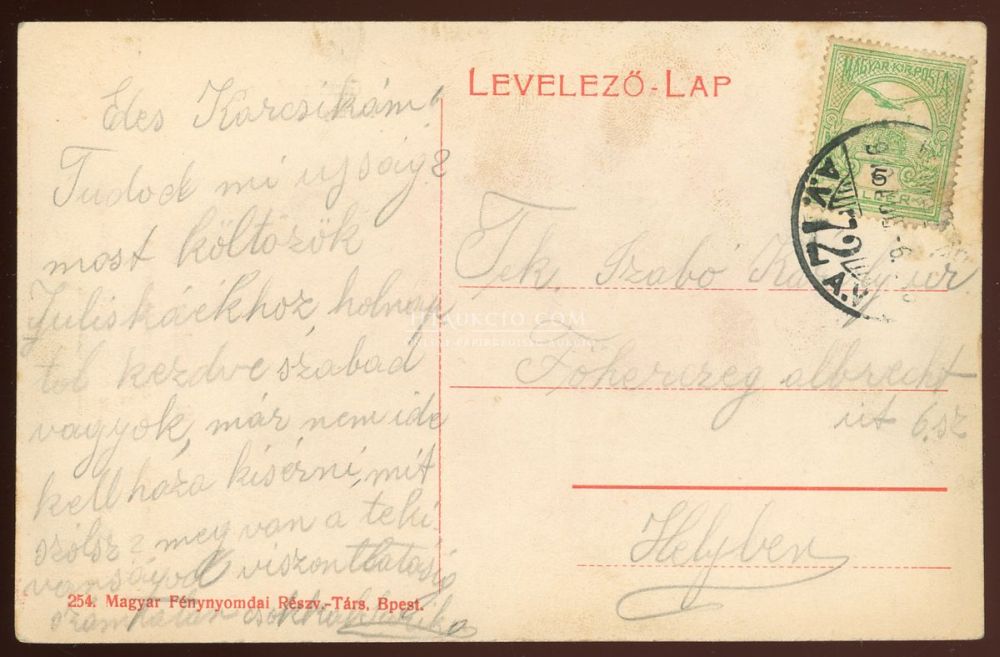 LEVELEZŐ-LAP
MAGYAR·KIR·POSTA
A.V. 72 A.V.
Edes Karcsikám!
Tudod mi ujság?
most költözök
Juliskáékhoz, holnap
tól kezdve szabad
vagyok, már nem ide
kell haza kisérni, mit
szólsz? meg van a
viszontlatasig
Tek. Szabó Károly ur.
Főherczeg albrecht
út 6. sz
Helyben
HTAUKCIO.COM
254. Magyar Fénynyomdai Részv.-Társ, Bpest.